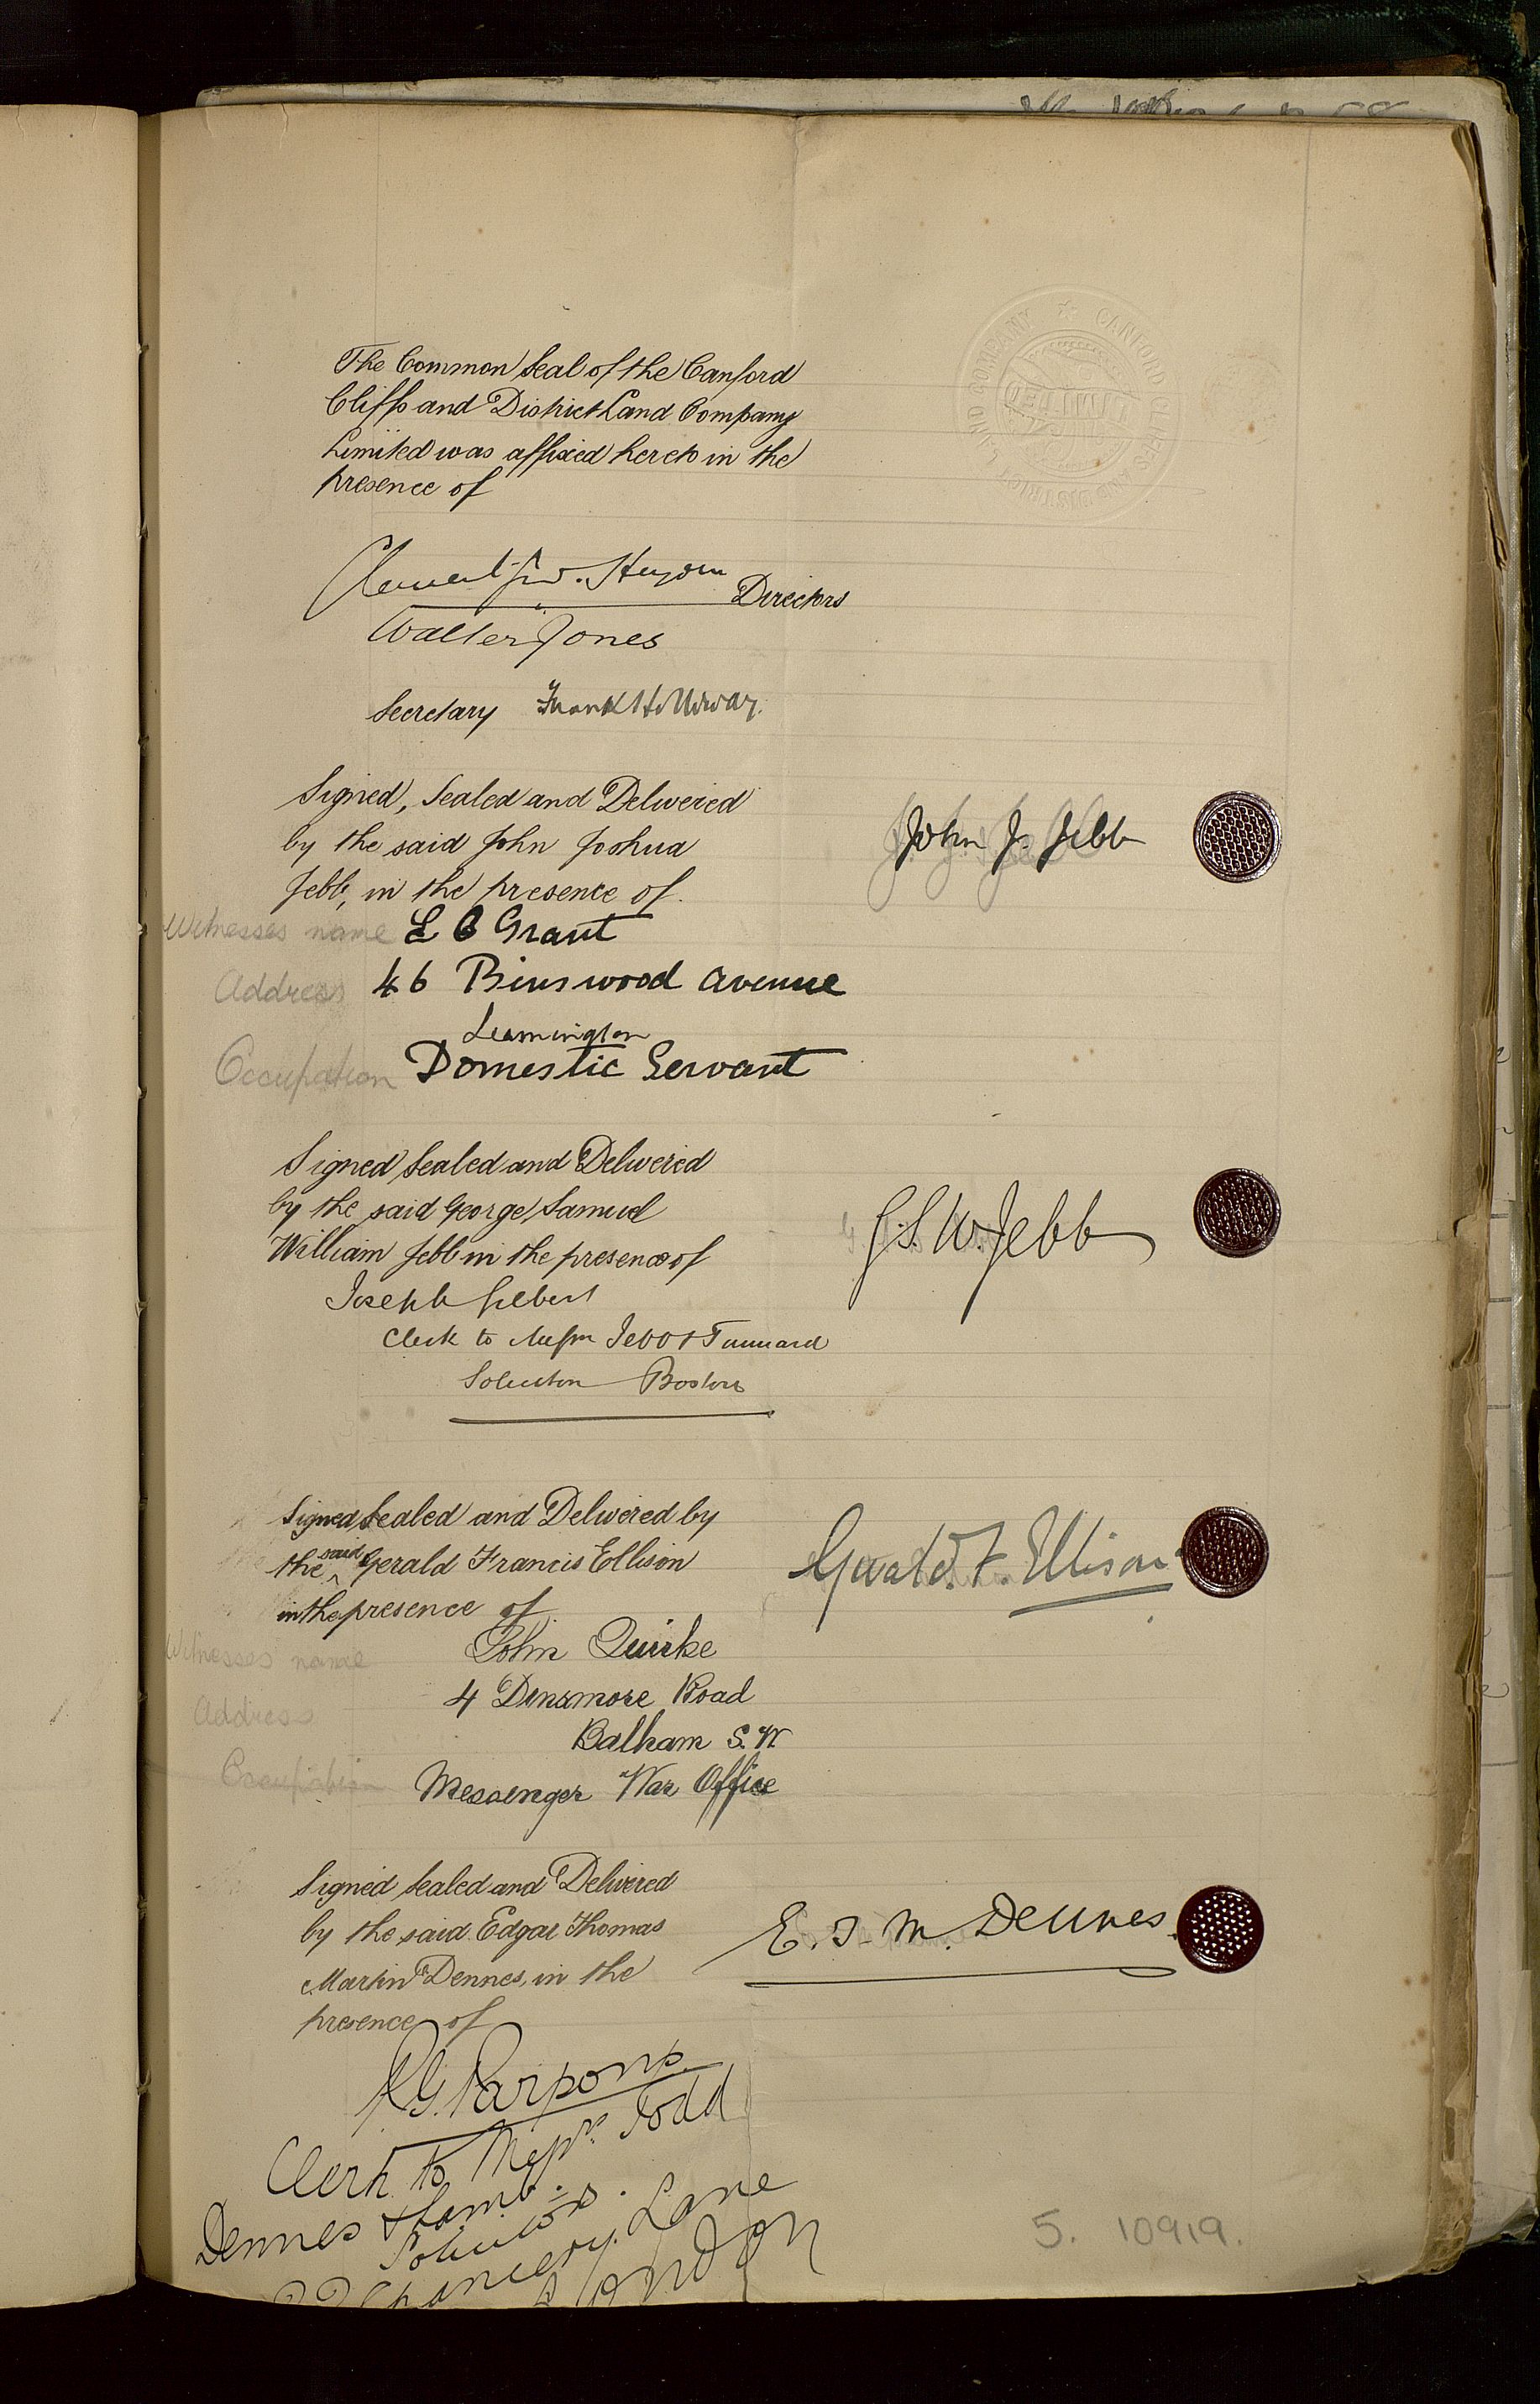 CANFORD CLIFFS AND DISTRICT LAND COMPANY
LIMITED
The Common Seal of the Canford
Cliffs and District Land Company
Limited was affixed hereto in the
presence of
Directors
Walter Jones
Secretary Frank Holloway.
Signed, Sealed and Delivered
by the said John Joshua
Jebb, in the presence of.
John J. Jebb
Witnesses name L C Grant
Address 46 Binswood Avenue
Leamington
Occupation Domestic Servant
Signed Sealed and Delivered
by the said George Samuel
William Jebb in the presence of
G. S. W. Jebb
Joseph Gilbert
Clerk to Messrs Jebb & Tunnard
Solicitors Boston
Signed Sealed and Delivered by
the said Gerald Francis Ellison
in the presence of
Gerald. F. Ellison
Witnesses name John Quirke
Address 4 Densmore Road
Balham S. W
Occupation Messenger War Office
Signed Sealed and Delivered
by the said Edgar Thomas
Martin Dennes, in the
presence of
E. T. M. Dennes.
R G. Parsons
Clerk to Messrs. Todd
Dennes & Lamb.
Solicitors.
22 Chancery Lane
London
5. 10919.